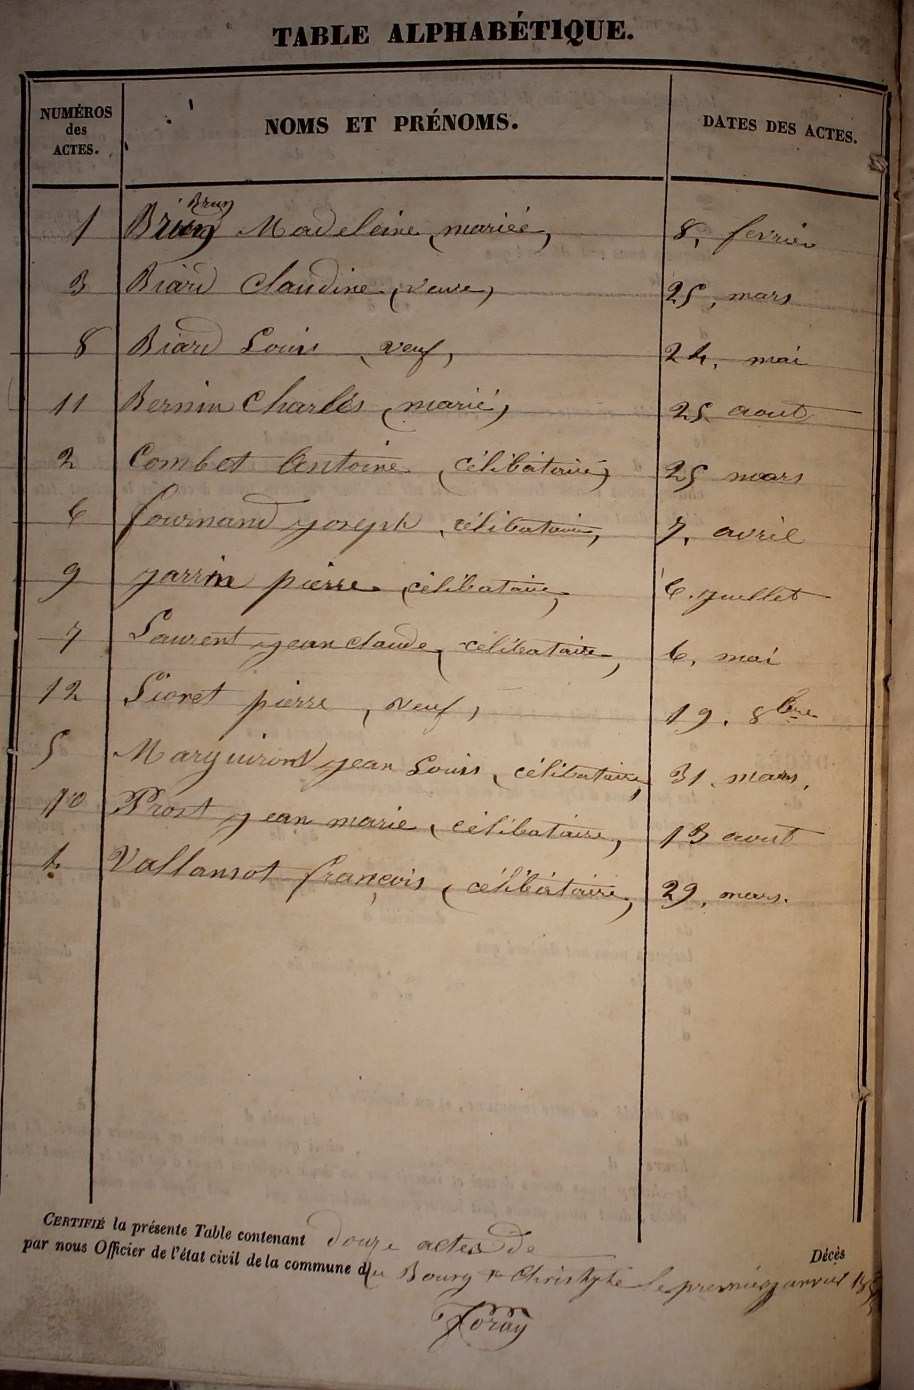 TABLE ALPHABÉTIQUE.
NUMÉROS des ACTES. NOMS ET PRÉNOMS. DATES DES ACTES.
Brun
1 Brun Madeleine (mariée) 8, fevrier
3 Biard Claudine (veuve) 25, mars
8 Biard Louis (veuf) 24, mai
11 Bernin Charles (marié) 25 aout
2 Combet Antoine (célibataire) 25 mars
6 fournand joseph (célibataire) 7, avril
9 jarrin pierre (célibataire) 6. juillet
7 Laurent jean claude (célibataire) 6, mai
12 Lioret pierre (veuf) 19. 8bre
5 Marguirond jean Louis (célibataire) 31. mars.
10 Prost jean marie (célibataire) 13 aout
4 Vallansot françois (célibataire) 29, mars.
CERTIFIÉ la présente Table contenant douze actes de Décès
par nous Officier de l'état civil de la commune du Bourg St Christophe le premier janvier
Foray